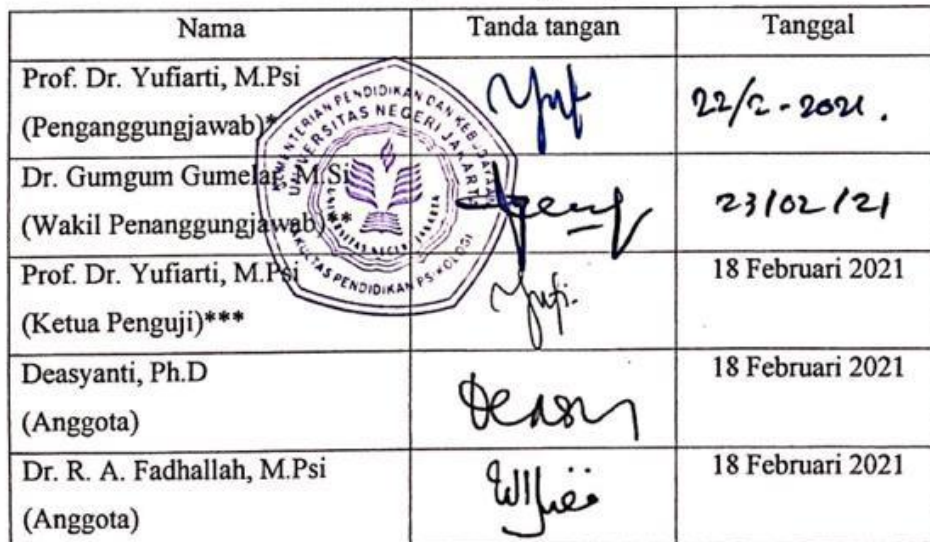 Nama Tanda tangan Tanggal
Prof. Dr. Yufiarti, M.Psi
(Penganggungjawab)* 22/2-2021.
Dr. Gumgum Gumelar, M.Si
(Wakil Penanggungjawab)** 23/02/21
Prof. Dr. Yufiarti, M.Psi 18 Februari 2021
(Ketua Penguji)***
Deasyanti, Ph.D 18 Februari 2021
(Anggota)
Dr. R. A. Fadhallah, M.Psi 18 Februari 2021
(Anggota)
KEMENTERIAN PENDIDIKAN DAN KEBUDAYAAN
UNIVERSITAS NEGERI JAKARTA
UNIVERSITAS NEGERI JAKARTA
FAKULTAS PENDIDIKAN PSIKOLOGI